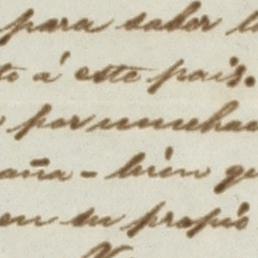 para saber l
to á este pais.
por muchas
aña - bien qu
en su propio